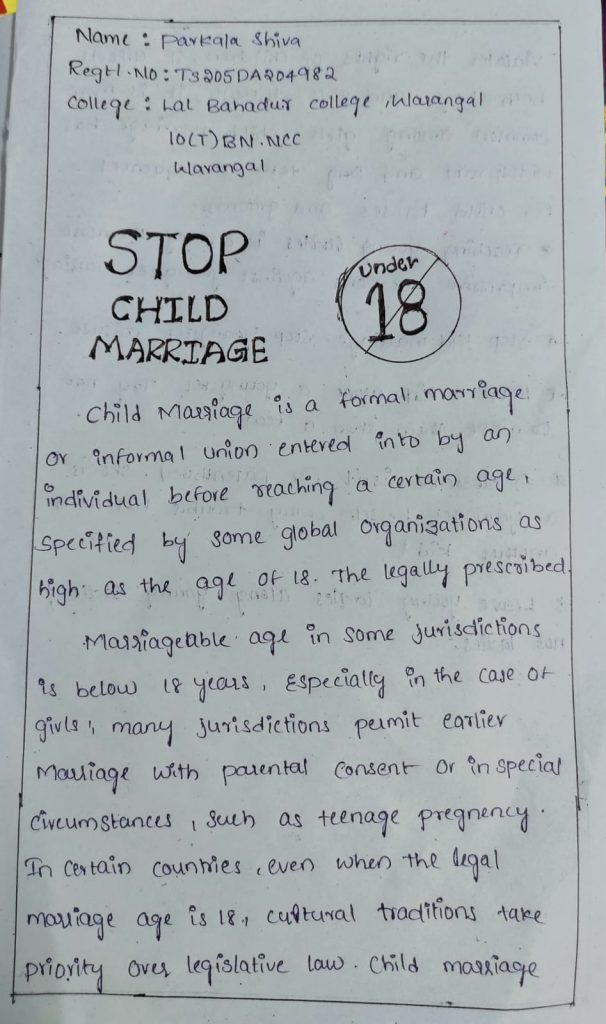 Name : Parkala Shiva
Regtl. No : TS20SDA204982
College : Lal Bahadur college, Warangal
10(T) BN. NCC
Warangal
STOP
CHILD
MARRIAGE
under
18
Child Marriage is a formal marriage
or informal union entered into by an
individual before reaching a certain age,
specified by some global organizations as
high as the age of 18. The legally prescribed
Marriageable age in some jurisdictions
is below 18 years, Especially in the case of
girls, many jurisdictions permit earlier
Marriage with parental consent or in special
circumstances, such as teenage pregnency.
In certain countries, even when the legal
marriage age is 18, cultural traditions take
priority over legislative law. Child marriage